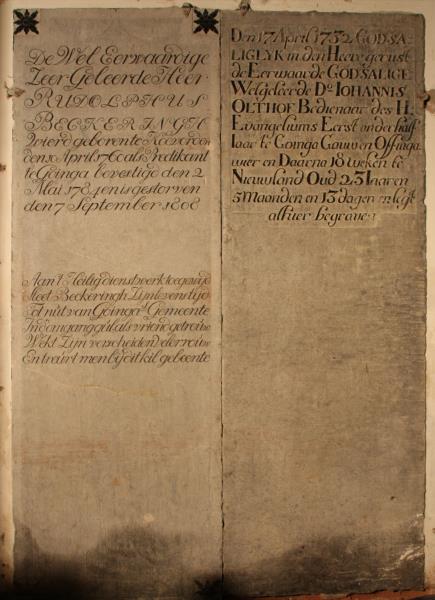 De Wel Eerwaardige
Zeer Geleerde Heer
RUDOLPHUS
BECKERINGH
Wierd geboren te Noordho
den 10 April 1760 als Predikant
te Goinga bevestigd den 2
Mai 178 en is gestorven
den 7 September 1808
Aan 't Heilig dienstwerk toegewijd
Sleet Beckeringh Zijn levenstijd
Tot nut van Goinga's Gemeente
In d'omgang gul als vriend getrouw
Wekt Zijn verscheiden elx rouw
En treurt men bij dit kil gebeente
Den 17 April 1752 GODSA-
LIGLYK in den Heere gerust
de Eerwaarde GODSALIGE
Welgeleerde Do IOHANNIS
OLTHOF Bedienaar des H.
Evangeliums Eerst anderhalf
Iaar te Goinga Gauw en Offinga
wier en Daarna 18 weken te
Nieuwland Oud 25 Iaaren
5 Maanden en 13 dagen en legt
alhier begraven